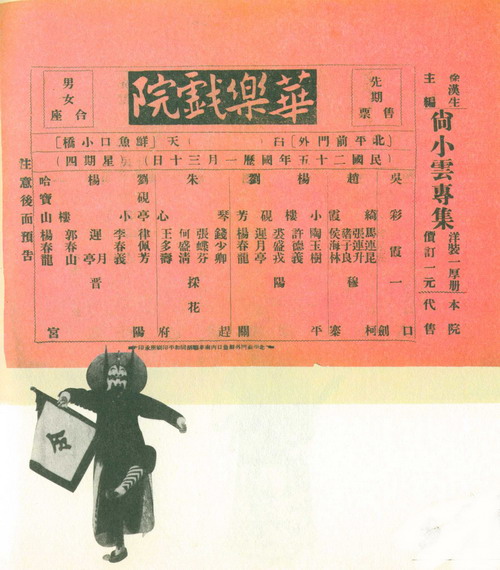 徐漢生
主編
尚小雲專集
洋裝一厚册
價訂一元
本院代售
先期
售票
華樂戲院
男女
合座
【北平前門外】白天【鮮魚口小橋】
民國二十五年國歷一月三十日 星期四
吳彩霞
一口劍
趙綺霞
馬連昆
張連升
諸子良
侯海林
穆柯寨
楊小樓
陶玉樹
許德義
裘盛戎
劉硯芳
遲月亭
楊春龍
陽平關
朱琴心
錢少卿
張蝶芬
何盛清
王多壽
採花趕府
劉硯亭
律佩芳
李春義
遲月亭
楊小樓
郭春山
楊春龍
哈寶山
晋陽宮
注意後面預告